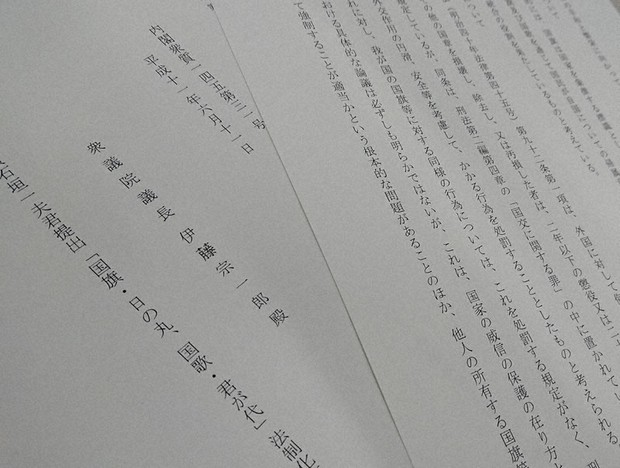 の役割を果たしているものと考えている。
について
(明治四十年法律第四十五号)第九十二条第一項は、外国に対して
の他の国章を損壊し、除去し、又は汚損した者は、二年以下の懲役又は二
規定しているが、同条は、刑法第二編第四章の「国交に関する罪」の中に置かれてい
外交作用の円滑、安全等を考慮して、かかる行為を処罰することとしたものと考えられる。
れに対し、我が国の国旗等に対する同様の行為については、これを処罰する規定がなく、刑
おける具体的な論議は必ずしも明らかではないが、これは、国家の威信の保護の在り方と
て強制することが適当かという根本的な問題があることのほか、他人の所有する国旗等
内閣衆質一四五第三一号
平成十一年六月十一日
衆議院議長 伊藤宗一郎殿
石垣一夫君提出「国旗・日の丸、国歌・君が代」法制化